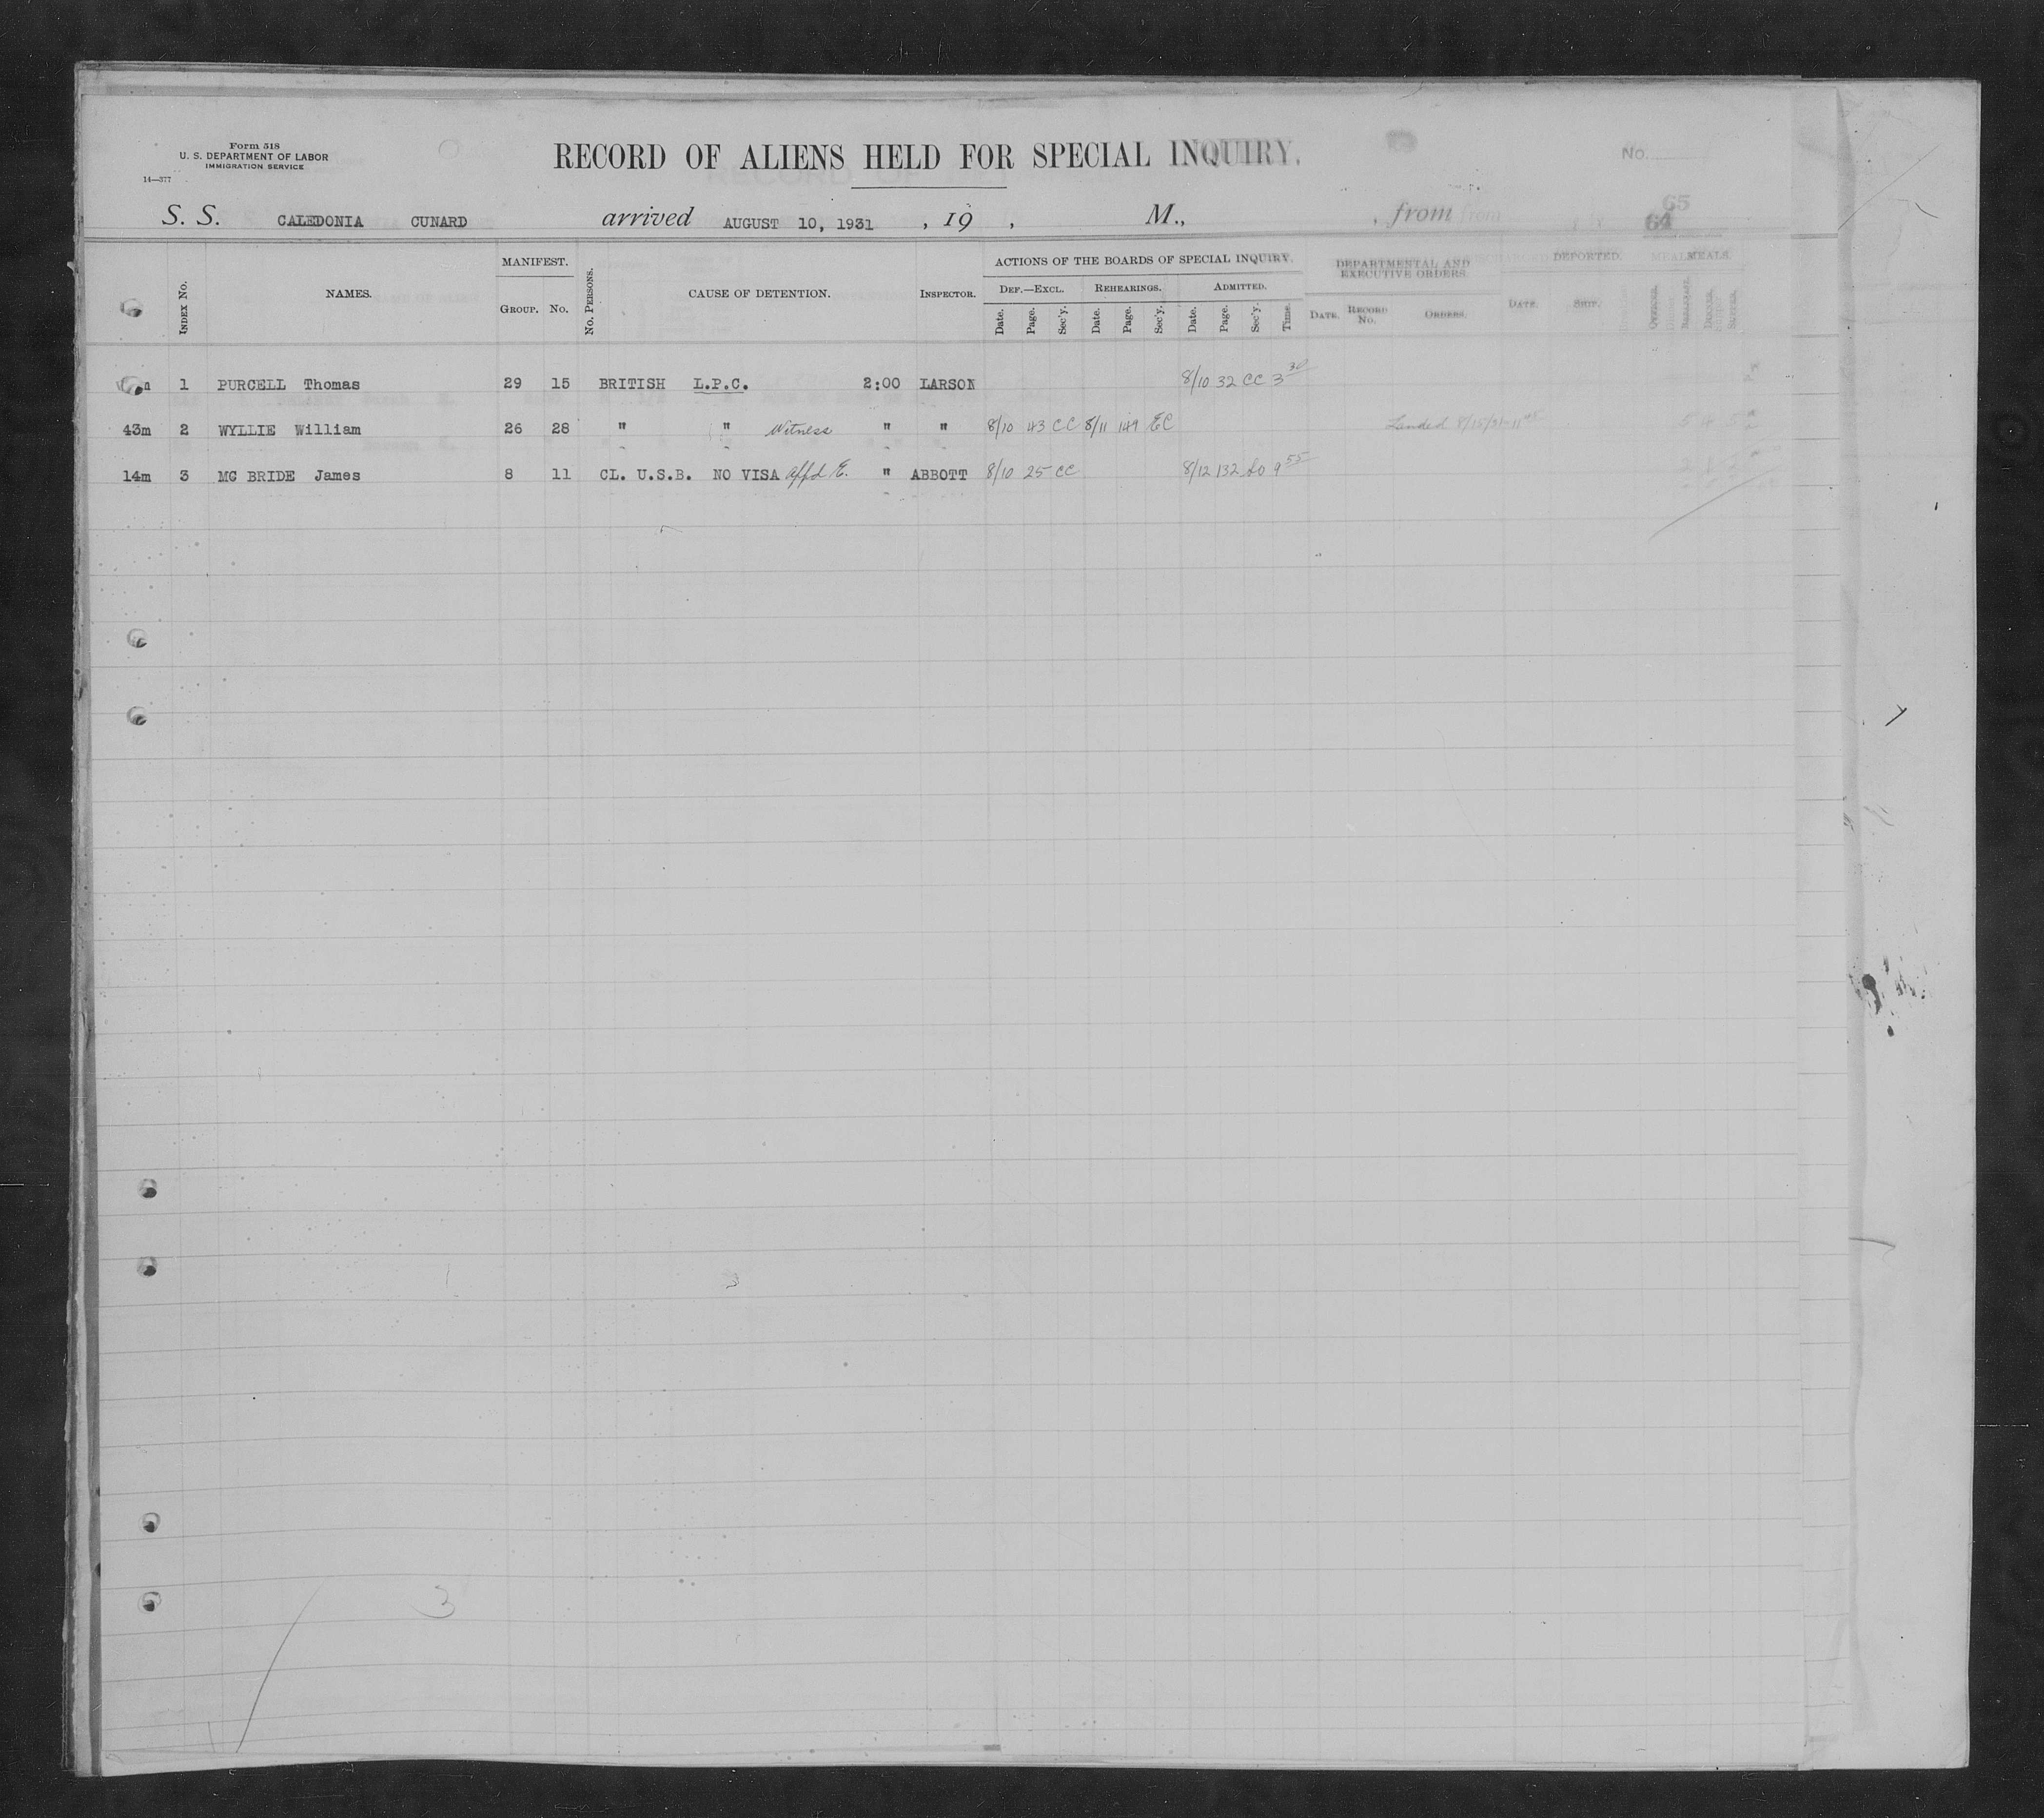 Form 518
U. S. DEPARTMENT OF LABOR
IMMIGRATION SERVICE
14—377
RECORD OF ALIENS HELD FOR SPECIAL INQUIRY.
No.
65
64
S. S. CALEDONIA CUNARD arrived AUGUST 10, 1931 , 19 , M., , from
INDEX No. NAMES. MANIFEST. GROUP. No. No. PERSONS. CAUSE OF DETENTION. INSPECTOR.
ACTIONS OF THE BOARDS OF SPECIAL INQUIRY. DEF.—EXCL. Date. Page. Sec'y. REHEARINGS. Date. Page. Sec'y. ADMITTED. Date. Page. Sec'y. Time.
DEPARTMENTAL AND EXECUTIVE ORDERS. DATE. RECORD No. ORDERS. DEPORTED. DATE. SHIP. MEALS. BREAKFAST. DINNER. SUPPER.
1 PURCELL Thomas 29 15 BRITISH L.P.C. 2:00 LARSON 8/10 32 CC 3 30
43m 2 WYLLIE William 26 28 " " Witness " " 8/10 43 CC 8/11 149 EC Landed 8/15/31 5 4 5
14m 3 MC BRIDE James 8 11 CL. U.S.B. NO VISA Affd E. " ABBOTT 8/10 25 CC 8/12 132 9 55
3